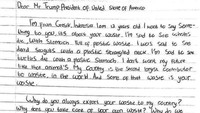 Dear Mr Trump President of United State of America
I'm from Gresik, Indonesia I am 12 years old I want to say Some-
thing to you, it's about your waste. I'm Sad to see whales
die, With Stomach full of plastic waste. I was sad to see
and Seagulls with a plastic strangled neck. I'm Sad to see
turtles die with a plastic Stomach. I don't want my future
like that animal's. My country is the Second largest contributor
to waste, in the world. And some of that waste is your
waste.
Why do you always export your waste to my country?
Why don't you take care of your own waste? Why do we